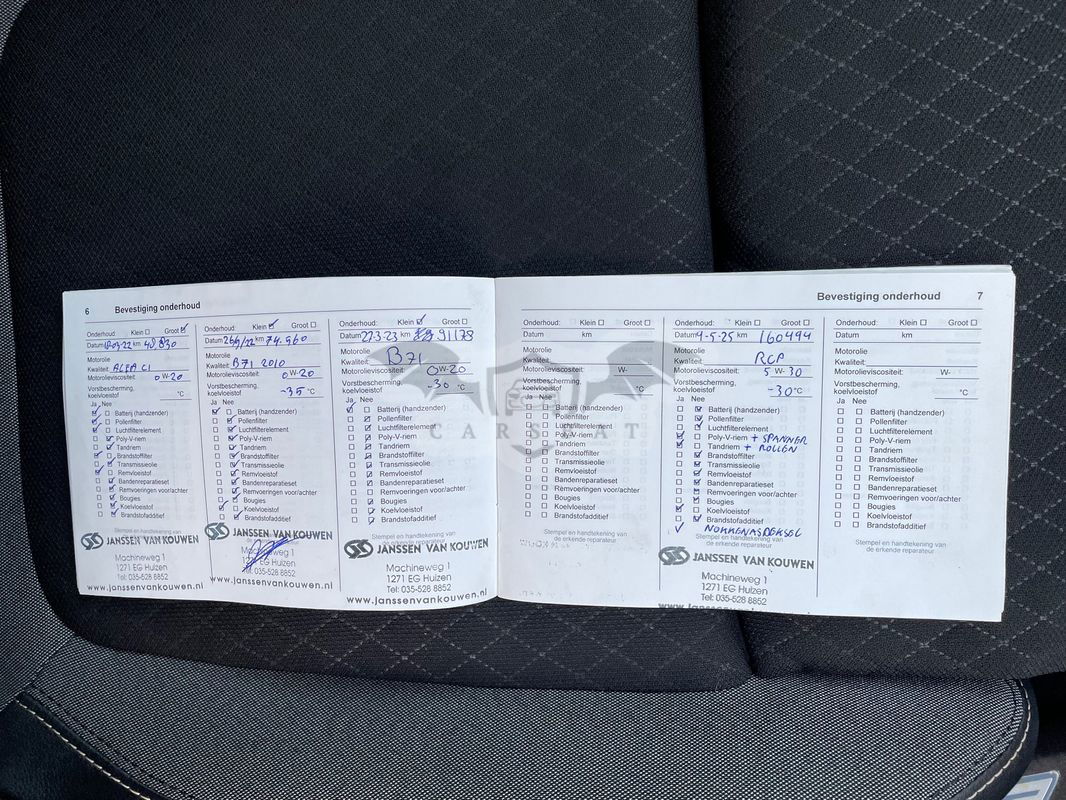 6 Bevestiging onderhoud
Onderhoud: Klein Groot
Datum km
Motorolie
Kwaliteit: ALFA C1
Motorolieviscositeit: 0W-20
Vorstbescherming,
koelvloeistof °C
Ja Nee
Batterij (handzender)
Pollenfilter
Luchtfilterelement
Poly-V-riem
Tandriem
Brandstoffilter
Transmissieolie
Remvloeistof
Bandenreparatieset
Remvoeringen voor/achter
Bougies
Koelvloeistof
Brandstofadditief
JANSSEN VAN KOUWEN
Machineweg 1
1271 EG Huizen
Tel: 035-528 8852
www.janssenvankouwen.nl
Onderhoud: Klein Groot
Datum km 74.960
Motorolie
Kwaliteit: B71 2010
Motorolieviscositeit: 0W-20
Vorstbescherming,
koelvloeistof -35 °C
Ja Nee
Batterij (handzender)
Pollenfilter
Luchtfilterelement
Poly-V-riem
Tandriem
Brandstoffilter
Transmissieolie
Remvloeistof
Bandenreparatieset
Remvoeringen voor/achter
Bougies
Koelvloeistof
Brandstofadditief
JANSSEN VAN KOUWEN
Tel: 035-528 8852
www.janssenvankouwen.nl
Onderhoud: Klein Groot
Datum 27-3-23 km 91178
Motorolie
Kwaliteit: B71
Motorolieviscositeit: 0W-20
Vorstbescherming,
koelvloeistof -30 °C
Ja Nee
Batterij (handzender)
Pollenfilter
Luchtfilterelement
Poly-V-riem
Tandriem
Brandstoffilter
Transmissieolie
Remvloeistof
Bandenreparatieset
Remvoeringen voor/achter
Bougies
Koelvloeistof
Brandstofadditief
Stempel en handtekening van
de erkende reparateur
JANSSEN VAN KOUWEN
Machineweg 1
1271 EG Huizen
Tel: 035-528 8852
www.janssenvankouwen.nl
Bevestiging onderhoud 7
Onderhoud: Klein Groot
Datum km
Motorolie
Kwaliteit:
Motorolieviscositeit: W-
Vorstbescherming,
koelvloeistof °C
Ja Nee
Batterij (handzender)
Pollenfilter
Luchtfilterelement
Poly-V-riem
Tandriem
Brandstoffilter
Transmissieolie
Remvloeistof
Bandenreparatieset
Remvoeringen voor/achter
Bougies
Koelvloeistof
Brandstofadditief
Stempel en handtekening van
de erkende reparateur
Onderhoud: Klein Groot
Datum km 160494
Motorolie
Kwaliteit: RCP
Motorolieviscositeit: 5W-30
Vorstbescherming,
koelvloeistof -30 °C
Ja Nee
Batterij (handzender)
Pollenfilter
Luchtfilterelement
Poly-V-riem + SPANNER
Tandriem + ROLLEN
Brandstoffilter
Transmissieolie
Remvloeistof
Bandenreparatieset
Remvoeringen voor/achter
Bougies
Koelvloeistof
Brandstofadditief
NOKKENASDEKSEL
Stempel en handtekening van
de erkende reparateur
JANSSEN VAN KOUWEN
Machineweg 1
1271 EG Huizen
Tel: 035-528 8852
www.janssenvankouwen.nl
Onderhoud: Klein Groot
Datum km
Motorolie
Kwaliteit:
Motorolieviscositeit: W-
Vorstbescherming,
koelvloeistof °C
Ja Nee
Batterij (handzender)
Pollenfilter
Luchtfilterelement
Poly-V-riem
Tandriem
Brandstoffilter
Transmissieolie
Remvloeistof
Bandenreparatieset
Remvoeringen voor/achter
Bougies
Koelvloeistof
Brandstofadditief
Stempel en handtekening van
de erkende reparateur